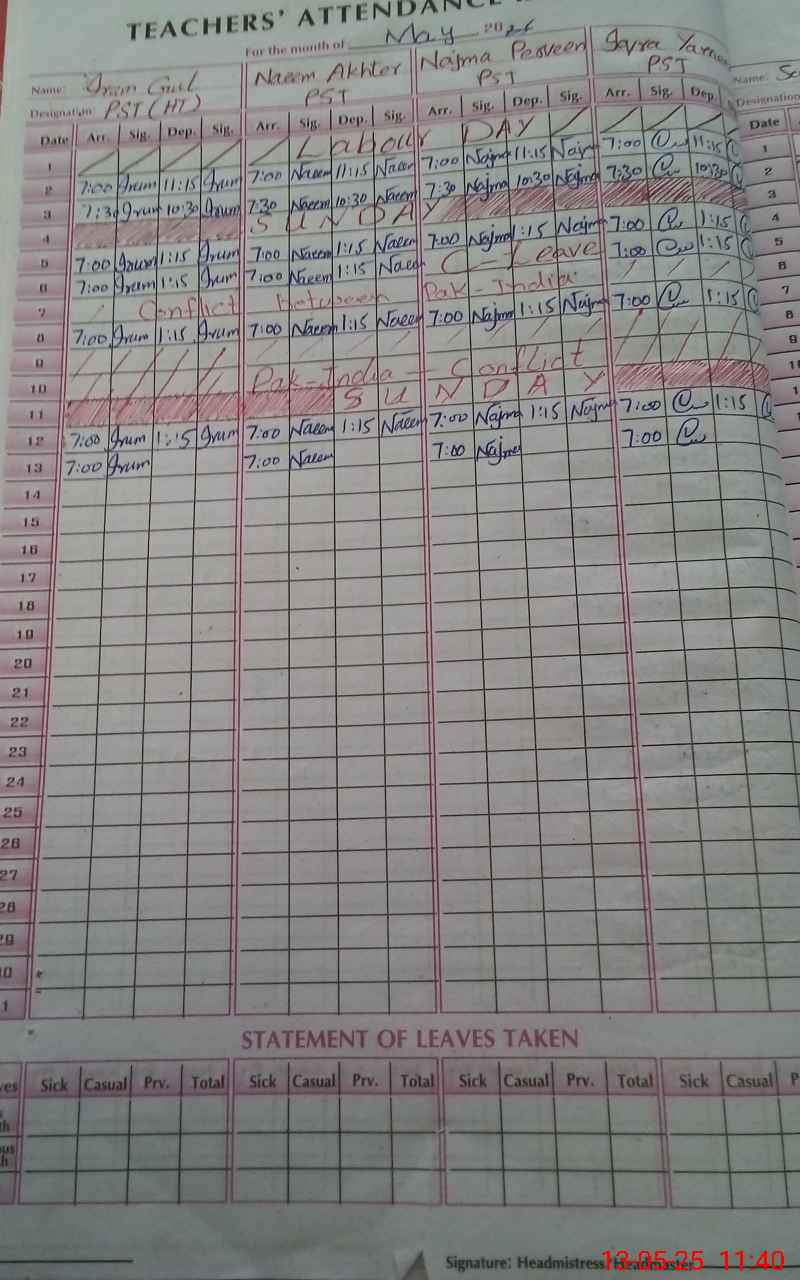 TEACHERS' ATTENDANCE
For the month of May 2026
Name: Irum Gul Naeem Akhter Najma Perveen Name:
Designation PST (HT) PST PST PST Designation
Date Arr. Sig. Dep. Sig. Arr. Sig. Dep. Sig. Arr. Sig. Dep. Sig. Arr. Sig. Dep. Date
1 Labour DAY 1
2 7:00 Irum 11:15 Irum 7:00 Naeem 11:15 Naeem 7:00 Najma 11:15 Najm 7:00 11:15 2
3 7:30 Irum 10:30 Irum 7:30 Naeem 10:30 Naeem 7:30 Najma 10:30 Najma 7:30 10:30 3
4 SUNDAY 4
5 7:00 Irum 1:15 Irum 7:00 Naeem 1:15 Naeem 7:00 Najma 1:15 Najma 7:00 1:15 5
6 7:00 Irum 1:15 Irum 7:00 Naeem 1:15 Naeem C-Leave 7:00 1:15 6
7 Conflict between Pak-India 7
8 7:00 Irum 1:15 Irum 7:00 Naeem 1:15 Naeem 7:00 Najma 1:15 Najma 7:00 1:15 8
9 9
10 Pak-India-Conflict
11 SUNDAY
12 7:00 Irum 1:15 Irum 7:00 Naeem 1:15 Naeem 7:00 Najma 1:15 Najma 7:00 1:15
13 7:00 Irum 7:00 Naeem 7:00 Najma 7:00
14
15
16
17
18
19
20
21
22
23
24
25
26
27
28
29
30
1
STATEMENT OF LEAVES TAKEN
ves Sick Casual Prv. Total Sick Casual Prv. Total Sick Casual Prv. Total Sick Casual P
th
ous
h
Signature: Headmistress/Headmaster
13-05-25 11:40